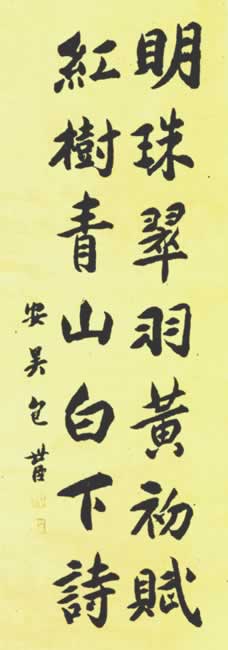 明珠翠羽黃初賦
紅樹青山白下詩
安吳包世臣